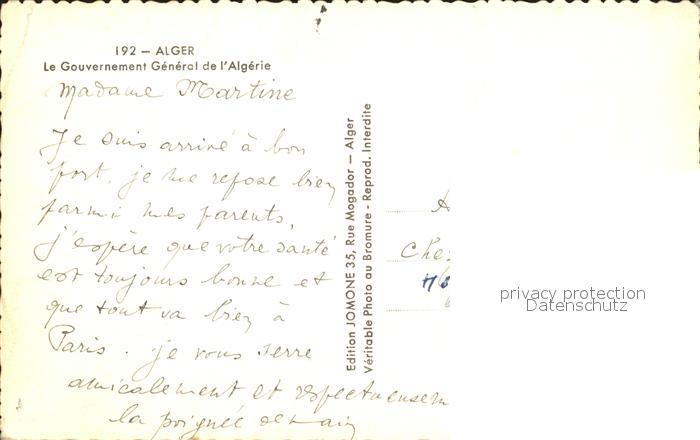 192 — ALGER
Le Gouvernement Général de l'Algérie
Madame Martine
Je suis arrivé à bon
port, je me repose bien
parmi mes parents,
j'espère que votre santé
est toujours bonne et
que tout va bien à
Paris. je vous serre
amicalement et respectueusem
la poignée de main
Edition JOMONE 35, Rue Mogador — Alger
Véritable Photo au Bromure - Reprod. Interdite
A
Che
privacy protection
Datenschutz